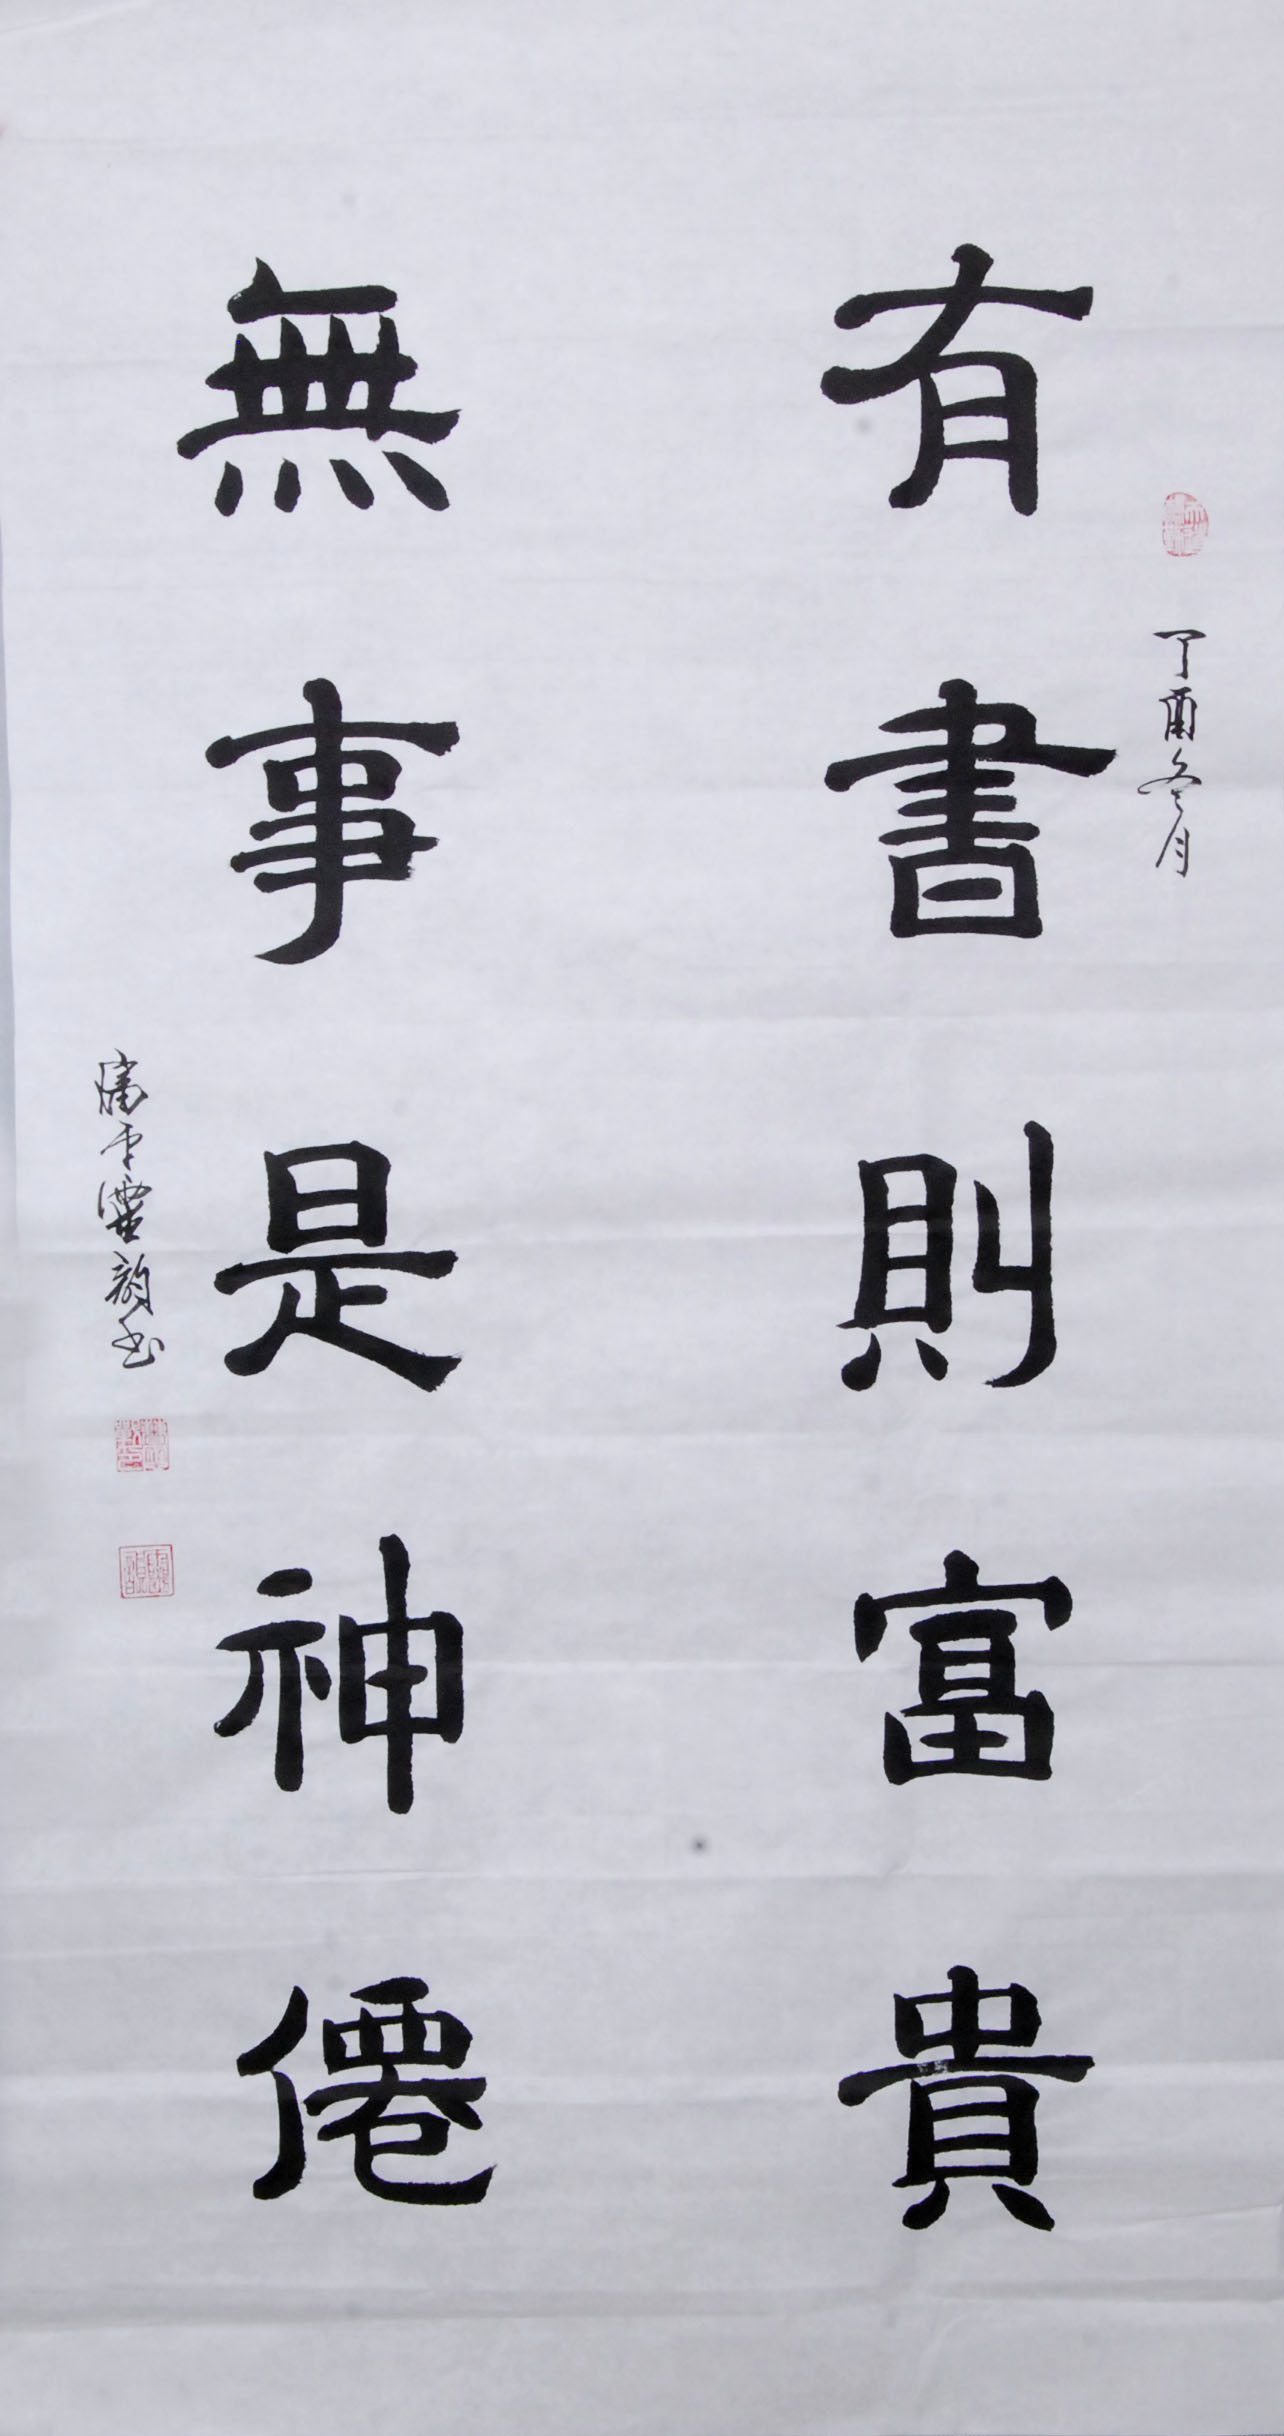 有書則富貴
丁酉冬月
無事是神僊